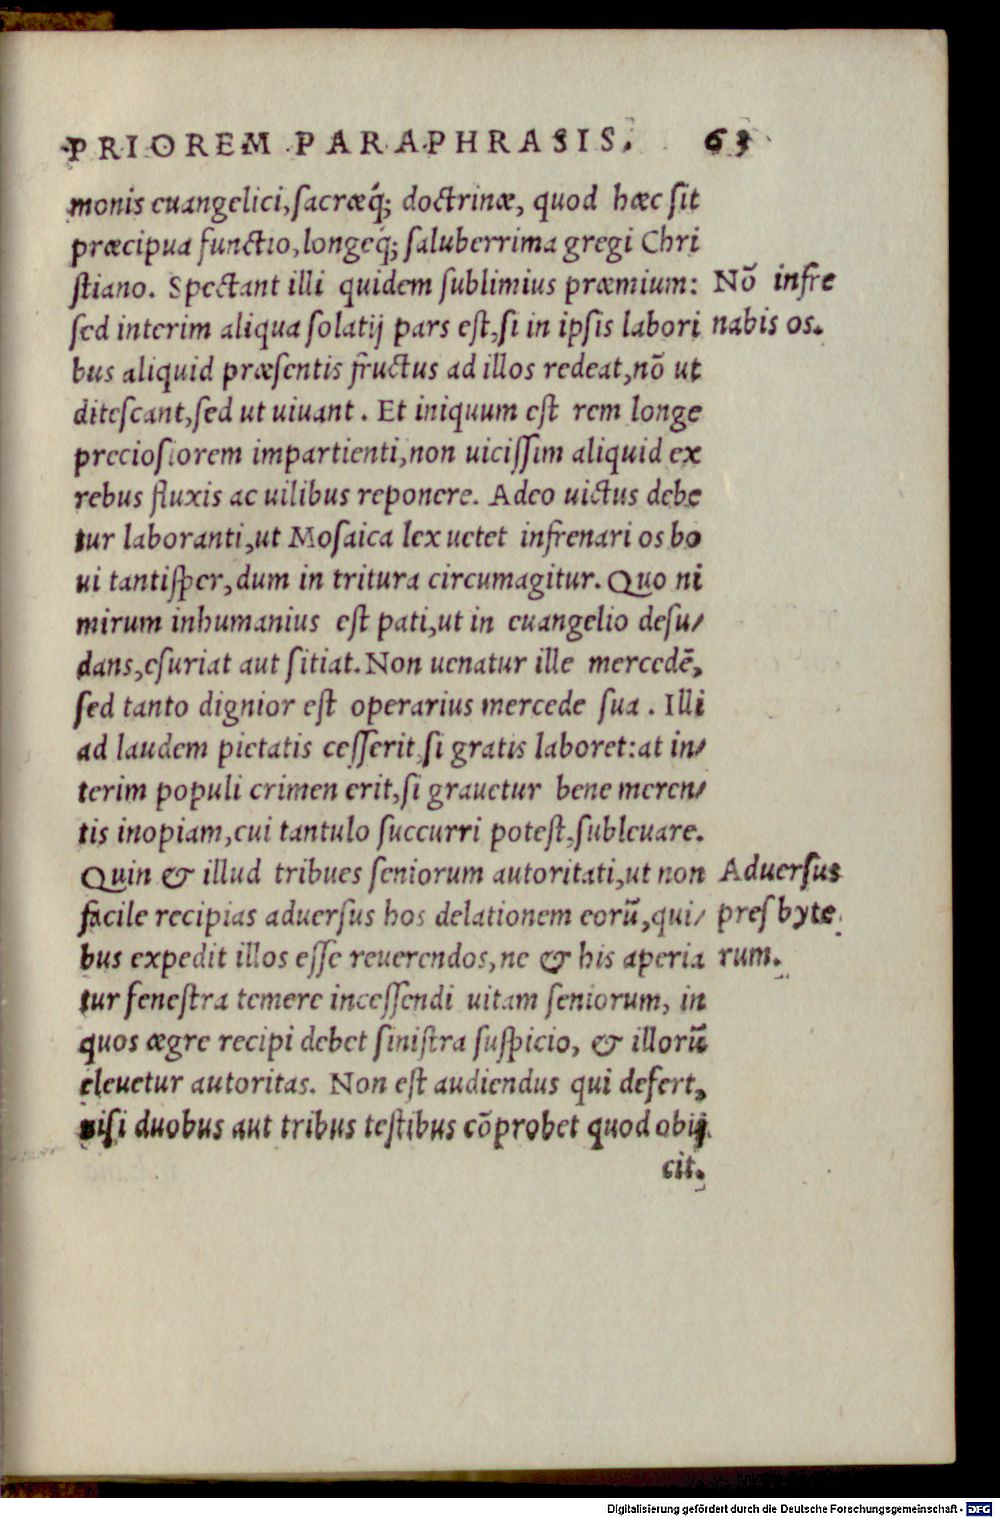 PRIOREM PARAPHRASIS. 63
monis euangelici, sacræq́; doctrinæ, quod hæc sit
præcipua functio, longeq́; saluberrima gregi Chri
stiano. Spectant illi quidem sublimius præmium:
sed interim aliqua solatij pars est, si in ipsis labori
bus aliquid præsentis fructus ad illos redeat, nõ ut
ditescant, sed ut uiuant. Et iniquum est rem longe
preciosiorem impartienti, non uicissim aliquid ex
rebus fluxis ac uilibus reponere. Adeo uictus debe
tur laboranti, ut Mosaica lex uetet infrenari os bo
ui tantisper, dum in tritura circumagitur. Quo ni
mirum inhumanius est pati, ut in euangelio desu/
dans, esuriat aut sitiat. Non uenatur ille mercedē,
sed tanto dignior est operarius mercede sua. Illi
ad laudem pietatis cesserit, si gratis laboret: at in/
terim populi crimen erit, si grauetur bene meren/
tis inopiam, cui tantulo succurri potest, subleuare.
Quin & illud tribues seniorum autoritati, ut non
facile recipias aduersus hos delationem eorũ, qui/
bus expedit illos esse reuerendos, ne & his aperia
tur fenestra temere incessendi uitam seniorum, in
quos ægre recipi debet sinistra suspicio, & illorũ
eleuetur autoritas. Non est audiendus qui defert,
nisi duobus aut tribus testibus cõprobet quod obij
cit.
Nõ infre
nabis os.
Aduersus
presbyte
rum.
Digitalisierung gefördert durch die Deutsche Forschungsgemeinschaft - DFG